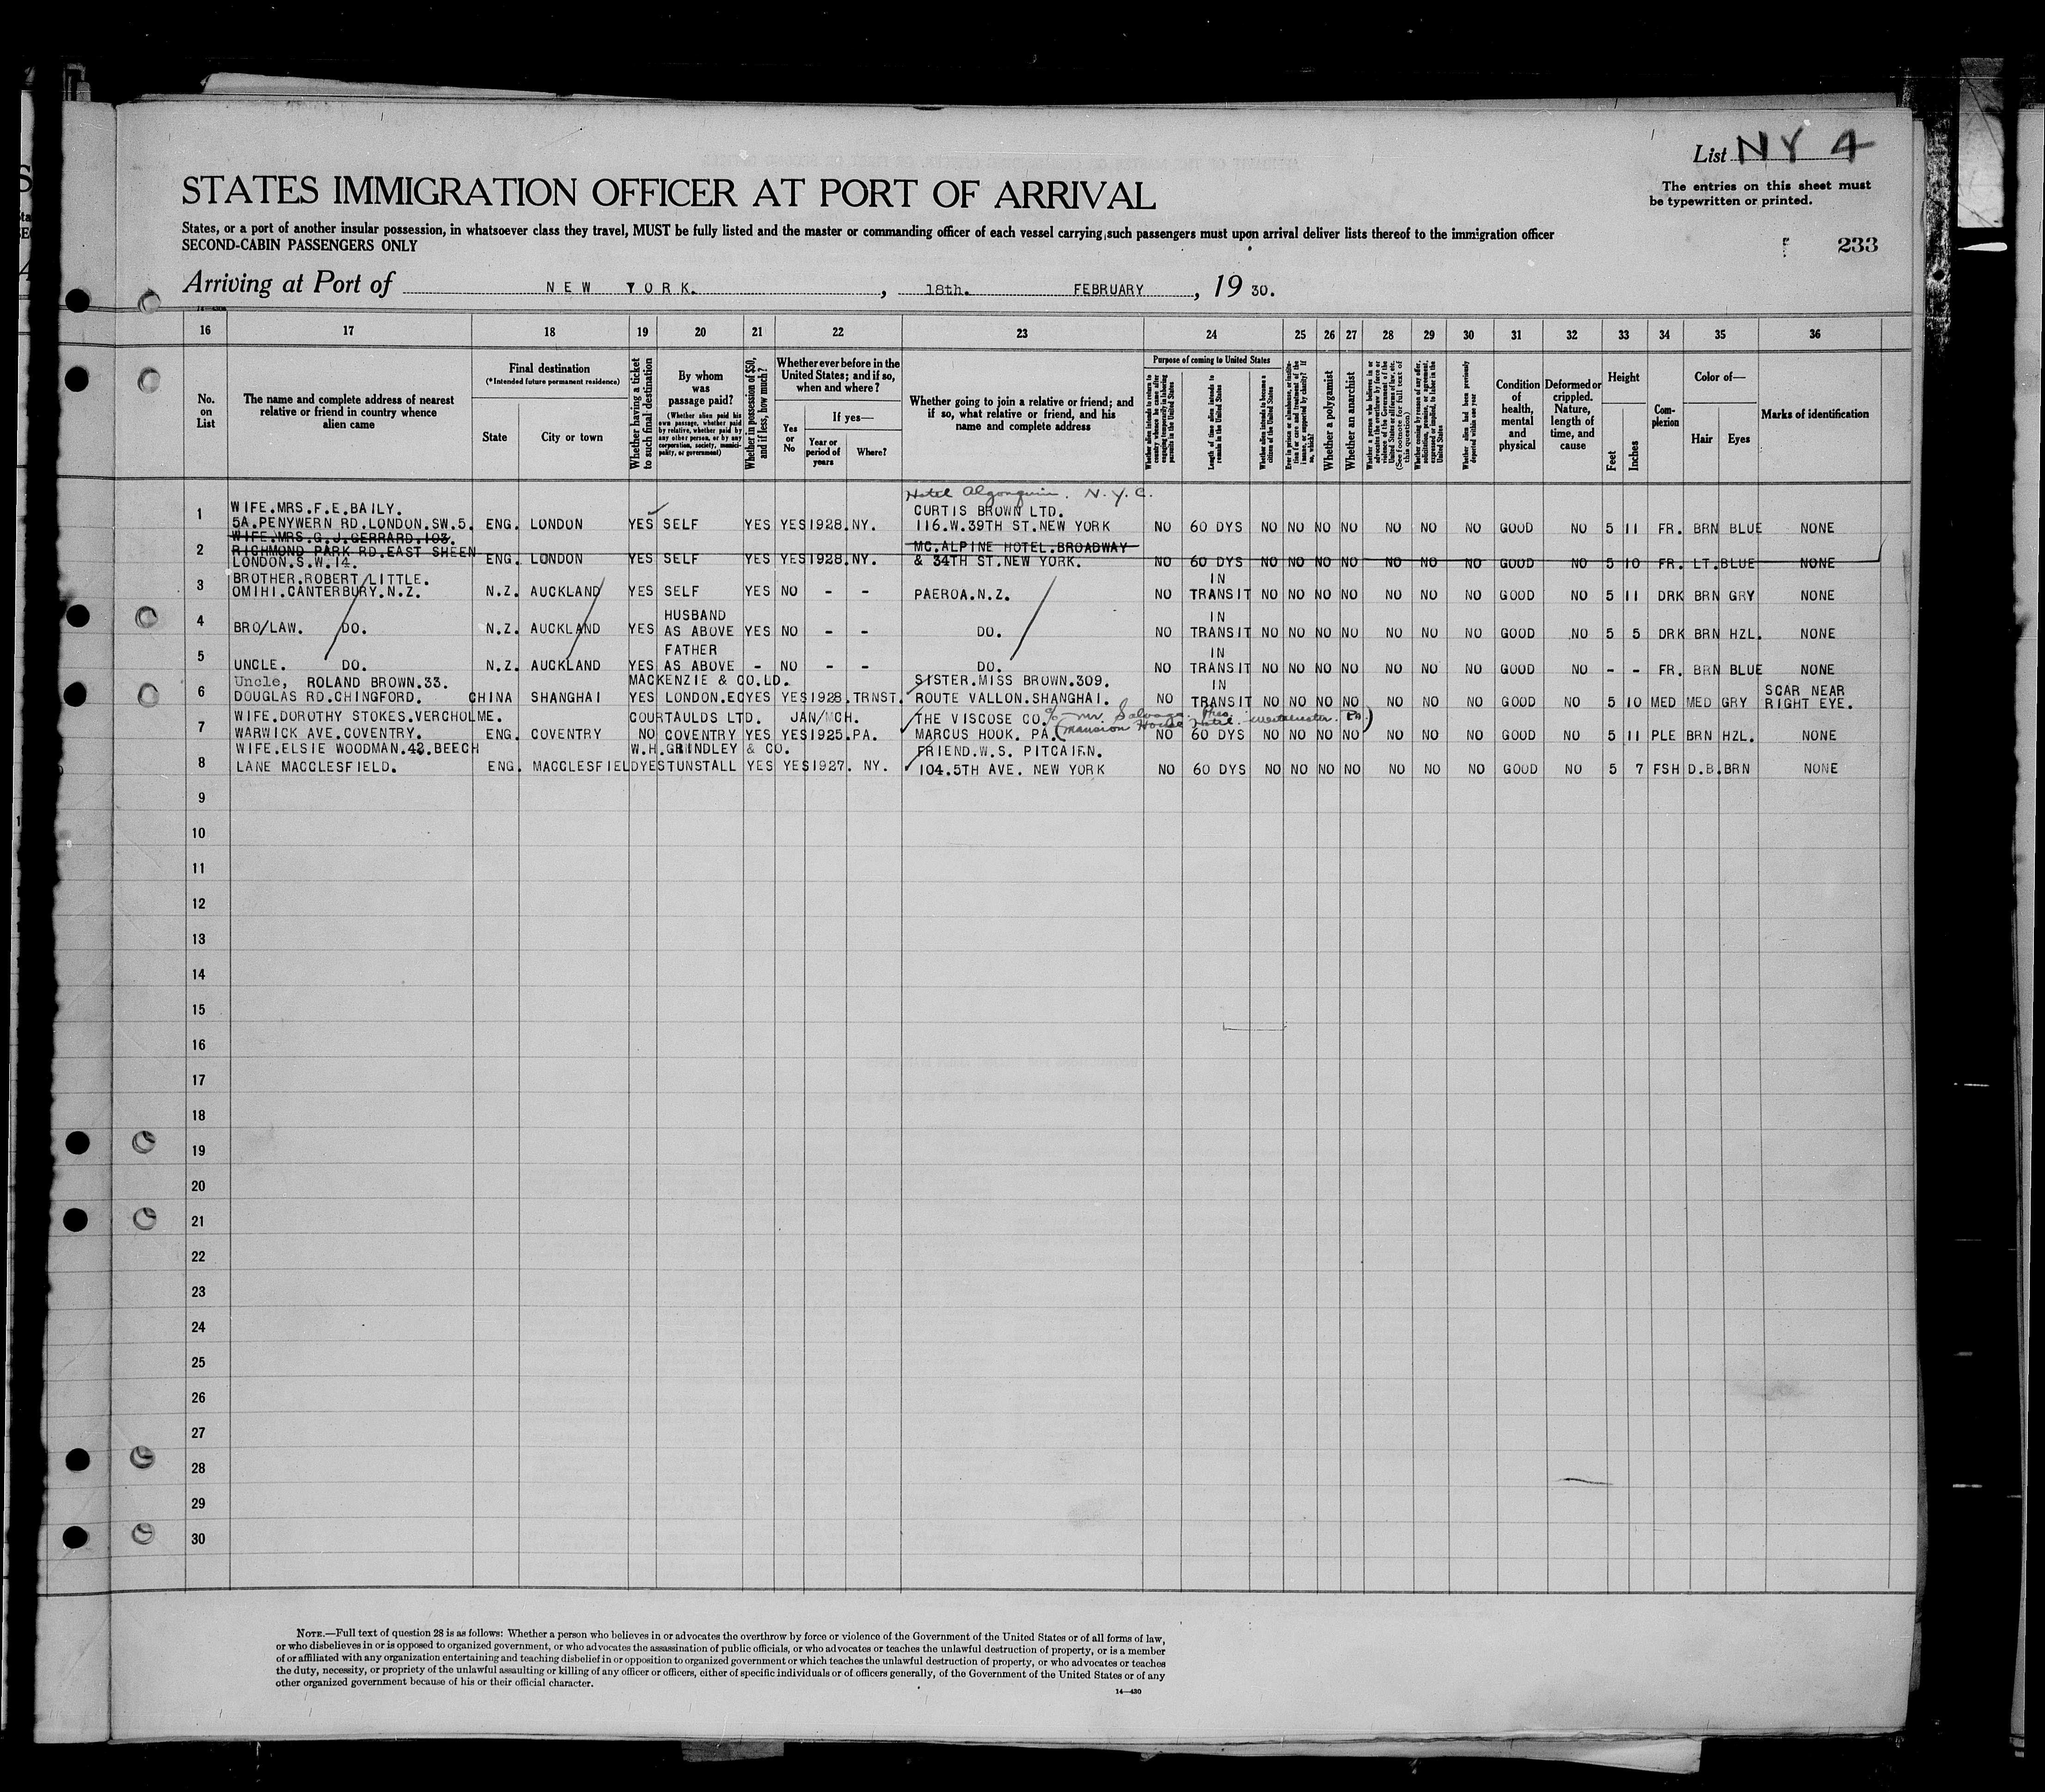 List NY 4
The entries on this sheet must
be typewritten or printed.
STATES IMMIGRATION OFFICER AT PORT OF ARRIVAL
States, or a port of another insular possession, in whatsoever class they travel, MUST be fully listed and the master or commanding officer of each vessel carrying such passengers must upon arrival deliver lists thereof to the immigration officer
SECOND-CABIN PASSENGERS ONLY
233
Arriving at Port of NEW YORK. , 18th. FEBRUARY , 19 30.
16 17 18 19 20 21 22 23 24 25 26 27 28 29 30 31 32 33 34 35 36
No. on List
The name and complete address of nearest relative or friend in country whence alien came
Final destination
(*Intended future permanent residence)
State
City or town
Whether having a ticket to such final destination
By whom was passage paid?
(Whether alien paid his own passage, whether paid by relative, whether paid by any other person, or by any corporation, society, municipality, or government)
Whether in possession of $50, and if less, how much?
Whether ever before in the United States; and if so, when and where?
Yes or No
If yes—
Year or period of years
Where?
Whether going to join a relative or friend; and if so, what relative or friend, and his name and complete address
Purpose of coming to United States
Whether alien intends to return to country whence he came after engaging temporarily in laboring pursuits in the United States
Length of time alien intends to remain in the United States
Whether alien intends to become a citizen of the United States
Ever in prison or almshouse, or institution for care and treatment of the insane, or supported by charity? If so, which?
Whether a polygamist
Whether an anarchist
Whether a person who believes in or advocates the overthrow by force or violence of the Government of the United States or all forms of law, etc. (See footnote for full text of this question)
Whether coming by reason of any offer, solicitation, promise, or agreement, expressed or implied, to labor in the United States
Whether alien had been previously deported within one year
Condition of health, mental and physical
Deformed or crippled. Nature, length of time, and cause
Height
Feet
Inches
Complexion
Color of—
Hair
Eyes
Marks of identification
Hotel Algonquin. N.Y.C.
WIFE.MRS.F.E.BAILY. CURTIS BROWN LTD.
1 5A.PENYWERN RD.LONDON.SW.5. ENG. LONDON YES SELF YES YES 1928. NY. 116.W.39TH ST.NEW YORK NO 60 DYS NO NO NO NO NO NO NO GOOD NO 5 11 FR. BRN BLUE NONE
WIFE.MRS.G.J.GERRARD.103. MC.ALPINE HOTEL.BROADWAY
2 RICHMOND PARK RD.EAST SHEEN
LONDON.S.W.14. ENG. LONDON YES SELF YES YES 1928. NY. & 34TH ST.NEW YORK. NO 60 DYS NO NO NO NO NO NO NO GOOD NO 5 10 FR. LT. BLUE NONE
BROTHER.ROBERT LITTLE. IN
3 OMIHI.CANTERBURY.N.Z. N.Z. AUCKLAND YES SELF YES NO - - PAEROA.N.Z. NO TRANSIT NO NO NO NO NO NO NO GOOD NO 5 11 DRK BRN GRY NONE
HUSBAND IN
4 BRO/LAW. DO. N.Z. AUCKLAND YES AS ABOVE YES NO - - DO. NO TRANSIT NO NO NO NO NO NO NO GOOD NO 5 5 DRK BRN HZL. NONE
FATHER IN
5 UNCLE. DO. N.Z. AUCKLAND YES AS ABOVE - NO - - DO. NO TRANSIT NO NO NO NO NO NO NO GOOD NO - - FR. BRN BLUE NONE
Uncle, ROLAND BROWN.33. MACKENZIE & CO.LD. SISTER.MISS BROWN.309. IN SCAR NEAR
6 DOUGLAS RD.CHINGFORD. CHINA SHANGHAI YES LONDON.EC YES YES 1928. TRNST. ROUTE VALLON.SHANGHAI. NO TRANSIT NO NO NO NO NO NO NO GOOD NO 5 10 MED MED GRY RIGHT EYE.
WIFE.DOROTHY STOKES.VERCHOLME. COURTAULDS LTD. JAN/MCH. THE VISCOSE CO. c/o Mr Salvage. Pres.
(Mansion House Hotel. Westchester. Pa)
7 WARWICK AVE.COVENTRY. ENG. COVENTRY NO COVENTRY YES YES 1925. PA. MARCUS HOOK. PA. NO 60 DYS NO NO NO NO NO NO NO GOOD NO 5 11 PLE BRN HZL. NONE
WIFE.ELSIE WOODMAN.42.BEECH W.H.GRINDLEY & CO. FRIEND.W.S. PITCAIRN.
8 LANE MACCLESFIELD. ENG. MACCLESFIELD YES TUNSTALL YES YES 1927. NY. 104.5TH AVE. NEW YORK NO 60 DYS NO NO NO NO NO NO NO GOOD NO 5 7 FSH D.B. BRN NONE
9
10
11
12
13
14
15
16
17
18
19
20
21
22
23
24
25
26
27
28
29
30
NOTE.—Full text of question 28 is as follows: Whether a person who believes in or advocates the overthrow by force or violence of the Government of the United States or of all forms of law,
or who disbelieves in or is opposed to organized government, or who advocates the assassination of public officials, or who advocates or teaches the unlawful destruction of property, or is a member
of or affiliated with any organization entertaining and teaching disbelief in or opposition to organized government or which teaches the unlawful destruction of property, or who advocates or teaches
the duty, necessity, or propriety of the unlawful assaulting or killing of any officer or officers, either of specific individuals or of officers generally, of the Government of the United States or of any
other organized government because of his or their official character.
14—430